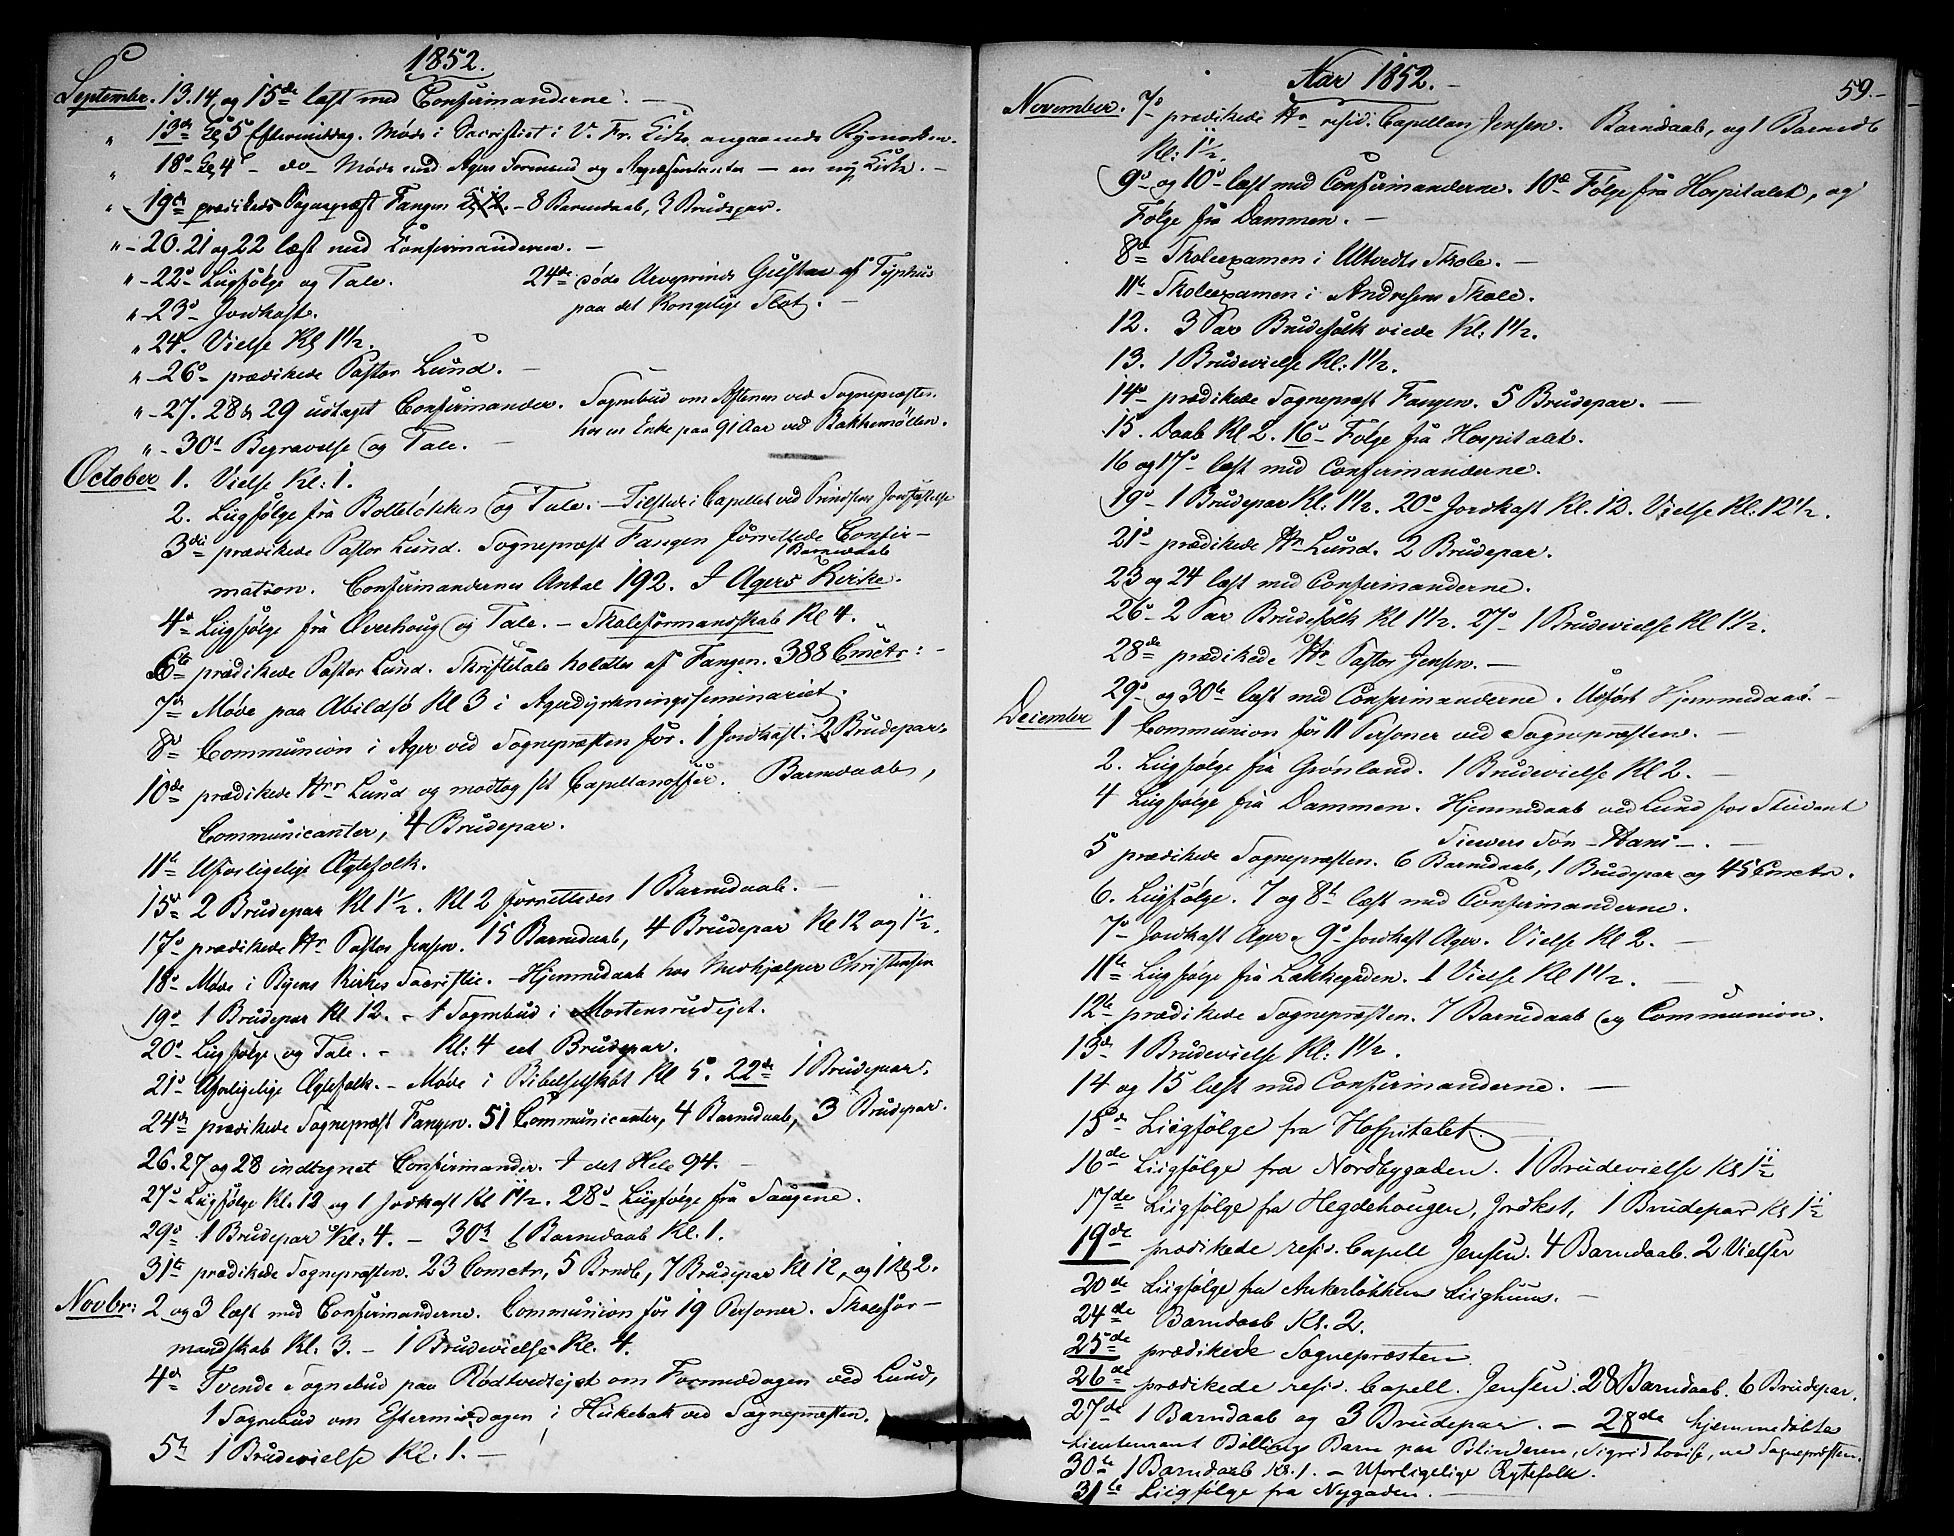 1852.
September. 13. 14 og 15de læst med Confirmanderne. —
" 13de Kl 5 Eftermiddag. Møde i Sacristiet i V. Fr. Kirke angaaende
" 18de Kl 4 – do – Møde med Agers Formænd og Repræsentanter — en ny Kirke. —
" – 19de prædikede Sognepræst Fangen – 8 Barnedaab, 3 Brudepar.
" – 20. 21 og 22 læst med Confirmanderne. —
" – 22d – Liigfølge og Tale. 24de døde Arveprinds Gustav af Typhus
paa det Kongelige Slot. —
" – 23d – Jordkast.
" 24. Vielse Kl 1 1/2.
" – 26d – prædikede Pastor Lund. —
" – 27. 28 & 29 udtaget Confirmander. Sognebud om Aftenen ved Sognepræsten
hos en Enke paa 91 Aar ved Bakkemøllen.
" – 30d Begravelse og Tale. —
October 1. Vielse Kl: 1.
2. Liigfølge frå Bolteløkken og Tale. – Tilstede i Capellet ved Prindsens Jordfæstelse
3de prædikede Pastor Lund. Sognepræst Fangen forrettede Confir-
1 Barnedaab
mation. Confirmandernes Antal 192. I Agers Kirke.
4d Liigfølge frå Øverhoug og Tale. – Skoleformandskab Kl 4.
6te prædikede Pastor Lund. Skriftetale holdtes af Fangen. 388 Cmctr: –
7de Møde paa Abildsø Kl 3 i Agerdyrkningsseminariet.
8d Communion i Ager ved Sognepræsten for. 1 Jordkast. 2 Brudepar.
10de prædikede Hrr Lund og modtog sit Capellanoffer. Barnedaab,
Communicanter, 4 Brudepar.
11te Uforligelige Ægtefolk.
15d 2 Brudepar Kl 1 1/2. Kl 2 forrettedes 1 Barnedaab. —
17d prædikede Hr Pastor Jensen. 15 Barnedaab, 4 Brudepar Kl 12 og 1 1/2.
18d Møde i Byens Kirkes Sacristie. – Hjemmedaab hos Medhjælper Christensen
19d 1 Brudepar Kl 12. – 1 Sognebud i Mortensrudejet.
20d Liigfølge og Tale. – Kl: 4 eet Brudepar.
21d Uforligelige Ægtefolk. – Møde i Bibelselskabt Kl 5. 22de 1 Brudepar.
24de prædikede Sognepræst Fangen. 51 Communicanter, 4 Barnedaab, 3 Brudepar.
26. 27 og 28 indtegnet Confirmander. I det Hele 94. —
27d Liigfølge Kl. 12 og 1 Jordkast Kl 1 1/2. 28d Liigfølge frå Saugene.
29d 1 Brudepar Kl: 4. – 30te 1 Barnedaab Kl. 1.
31te prædikede Sognepræsten. 23 Comctr, 5 Brndb, 7 Brudepar Kl 12, og 1 Kl 2.
Novbr: 2 og 3 læst med Confirmanderne. Communion for 19 Personer. Skolefor-
mandskab Kl. 3. – 1 Brudevielse Kl. 4.
4de Tvende Sognebud paa Rødtvedtejet om Formiddagen ved Lund,
1 Sognebud om Eftermiddagen i Hukebak ved Sognepræsten.
5te 1 Brudevielse Kl. 1. –
Aar 1852. — 59. –
November. 7d prædikede Hr resid. Capellan Jensen. Barndaab, og 1 Barnedb
Kl: 1 1/2.
9d og 10d læst med Confirmanderne. 10de Følge frå Hospitalet, og
Følge frå Dammen. –
8de Skoleexamen i Ulsrudts Skole. –
11te Skoleexamen i Andresens Skole.
12. 3 Par Brudefolk viede Kl: 1 1/2.
13. 1 Brudevielse Kl: 1 1/2.
14d prædikede Sognepræst Fangen. 5 Brudepar. —
15. Daab Kl 2. 16d Følge frå Hospitalet.
16 og 17d læst med Confirmanderne.
19d 1 Brudepar Kl: 1 1/2. 20d Jordkast Kl. 12. Vielse Kl: 12 1/2.
21d prædikede Hr Lund. 2 Brudepar.
23 og 24 læst med Confirmanderne.
26d 2 Par Brudefolk Kl 1 1/2. 27d 1 Brudevielse Kl 1 1/2.
28de prædikede Hr Pastor Jensen. –
29d og 30te læst med Confirmanderne. Udført Hjemmedaab –
December 1 Communion for 11 Personer ved Sognepræsten. –
2. Liigfølge frå Grønland. 1 Brudevielse Kl 2. –
4 Liigfølge frå Dammen. Hjemmedaab ved Lund for Student
Siewers Søn – Hans – .
5 prædikede Sognepræsten. 6 Barnedaab, 1 Brudepar og 45 Cmctr.
6. Liigfølge. 7 og 8de læst med Confirmanderne.
7d Jordkast Ager. 9d Jordkast Ager. Vielse Kl 2. –
11te Liigfølge frå Lakkegaden. 1 Vielse Kl 1 1/2. —
12te prædikede Sognepræsten. 7 Barnedaab og Communion.
13de 1 Brudevielse Kl: 1 1/2.
14 og 15 læst med Confirmanderne. —
15de Liigfølge fra Hospitalet. —
16de Liigfølge fra Nordbygaden. 1 Brudevielse Kl 1 1/2
17de Liigfølge fra Hegdehougen, Jordkst, 1 Brudepar Kl 1 1/2
19de prædikede resid. Capell Jensen. 4 Barndaab. 2 Vielser
20de Liigfølge fra Ankerløkkens Liighuus. –
24de Barndaab Kl. 2.
25de prædikede Sognepræsten
26de prædikede resid. Capell. Jensen. 28 Barndaab. 6 Brudepar.
27de 1 Barndaab og 3 Brudepar. – 28de hjemmedøbtes
Lieutenant Böllings Barn paa Blinderen, Sigrid Lovise, ved Sognepræsten.
30te 1 Barndaab Kl. 1. – Uforligelige Ægtefolk.
31te Liigfølge fra Nygaden. —